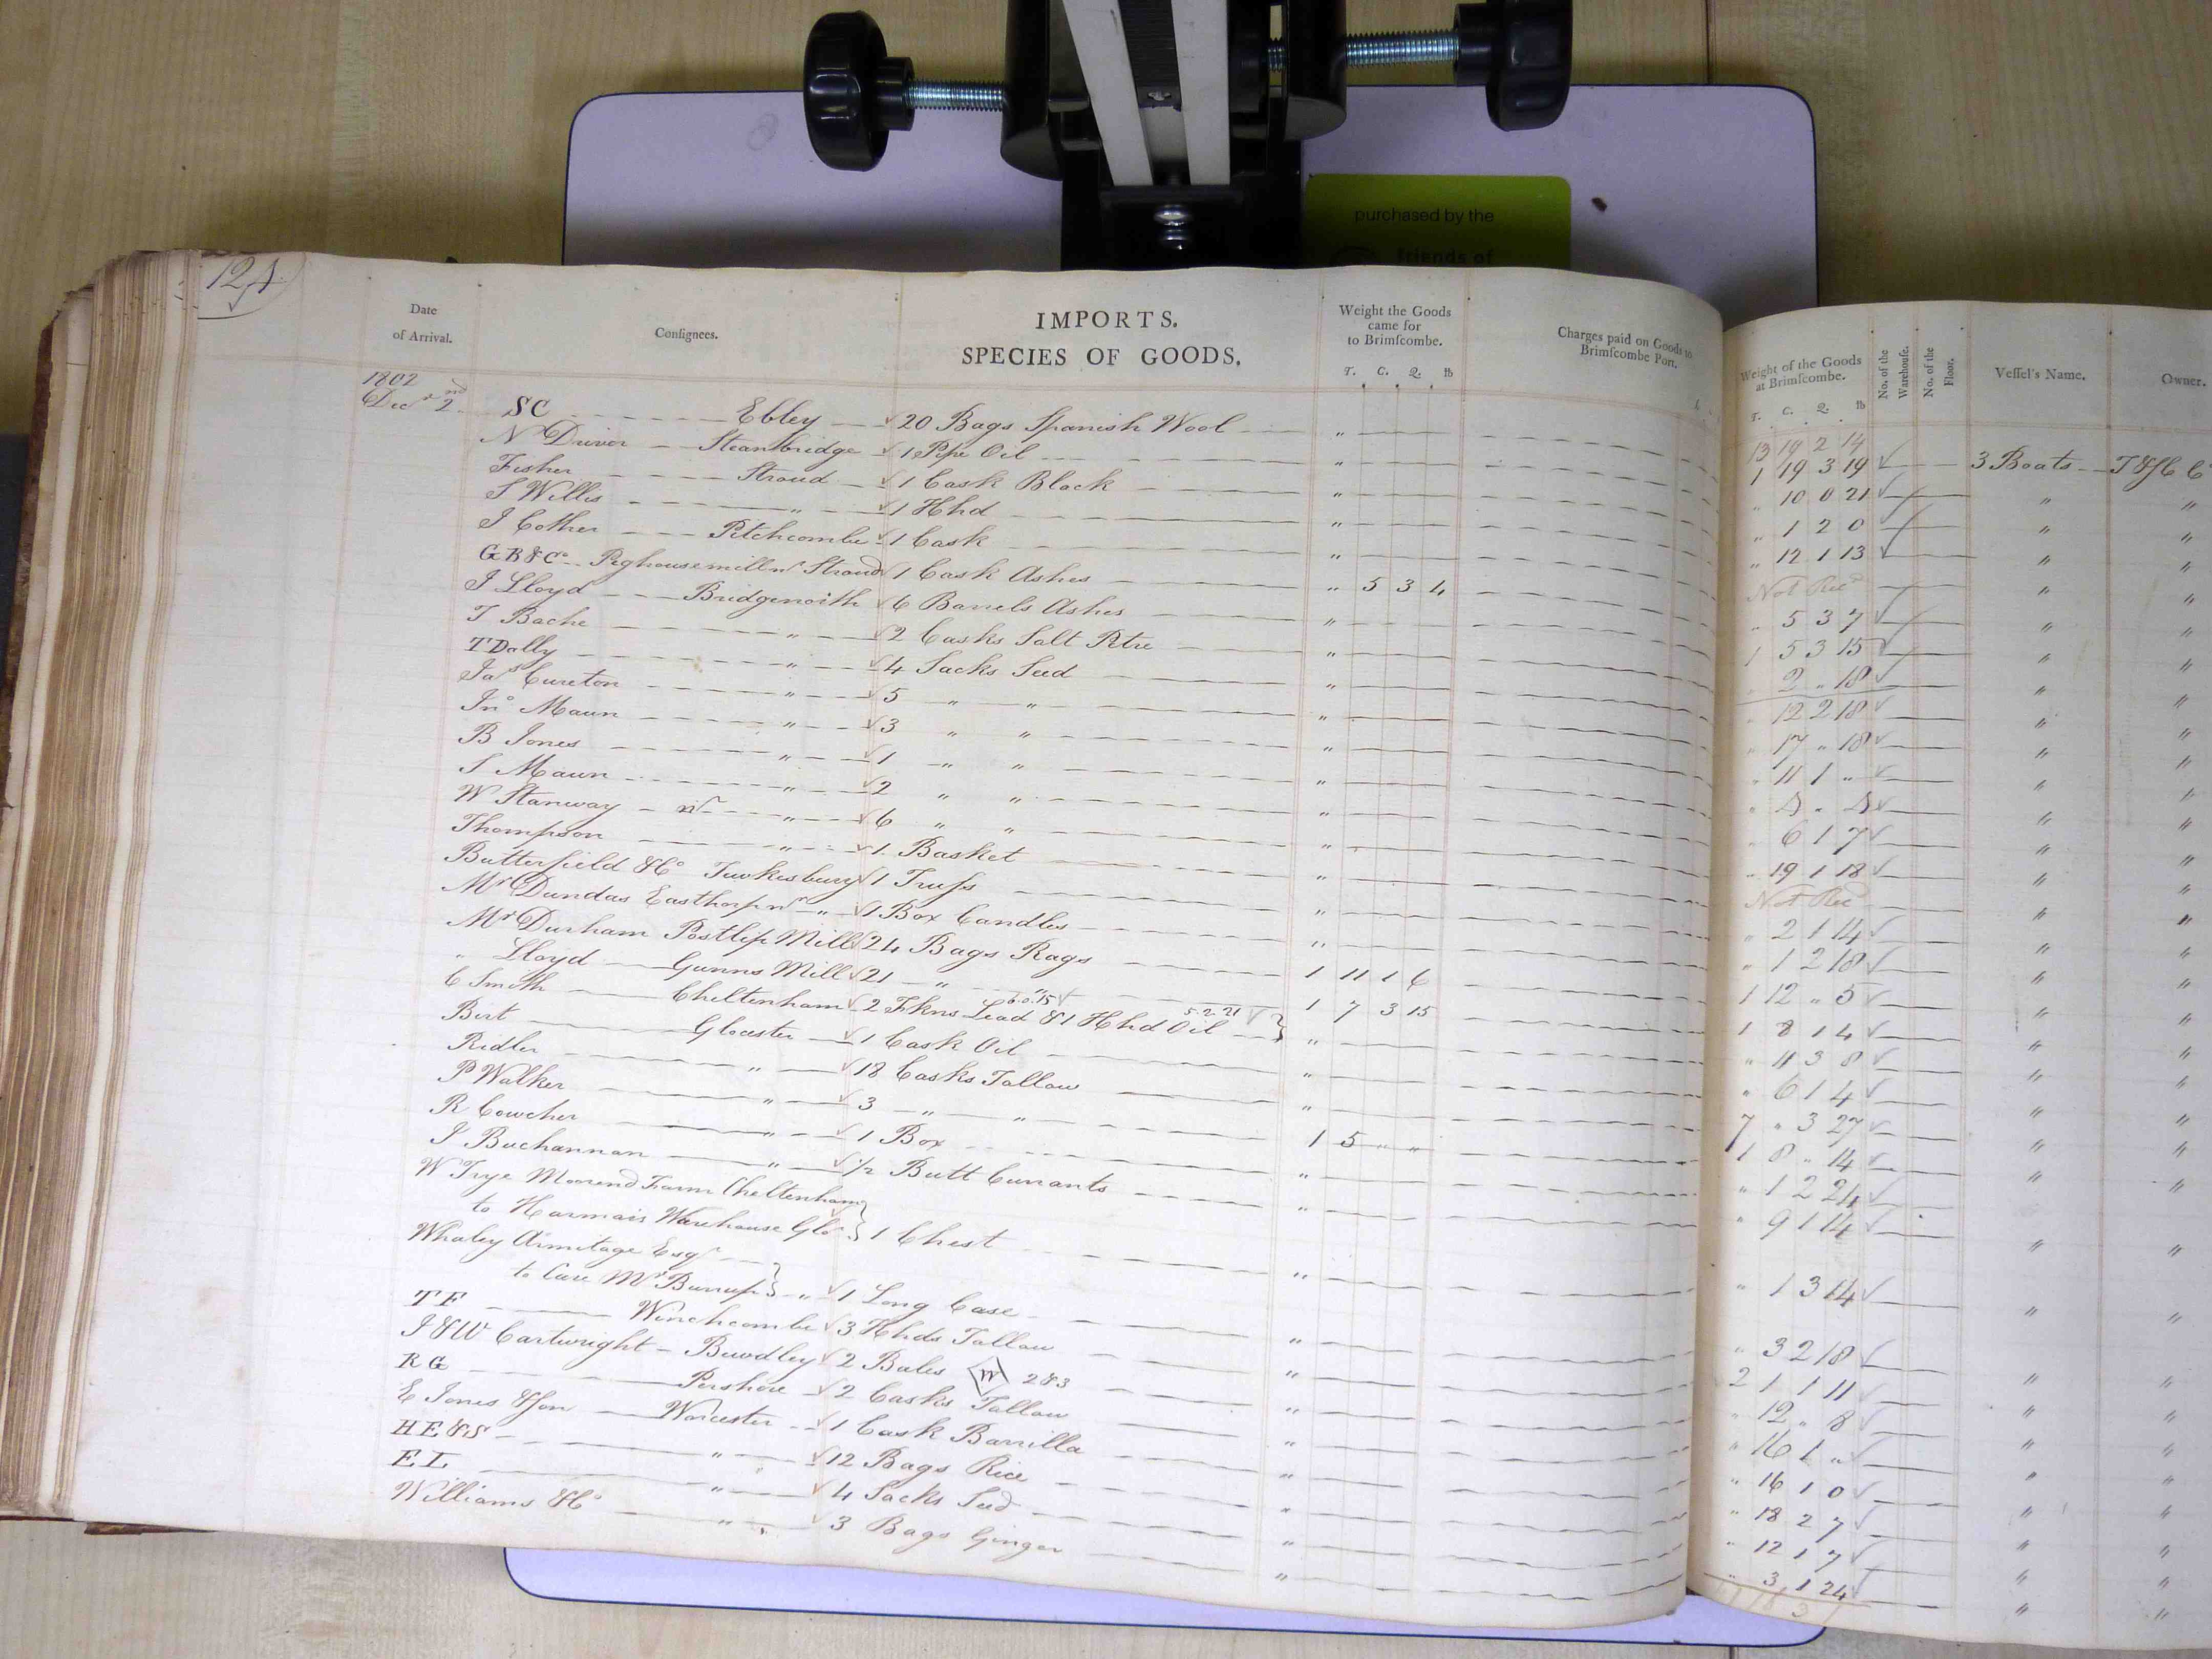 purchased by the
friends of
124
Date
of Arrival.
Consignees.
IMPORTS.
SPECIES OF GOODS.
Weight the Goods
came for
to Brimscombe.
T. C. Q. lb
Charges paid on Goods to
Brimscombe Port.
Weight of the Goods
at Brimscombe.
T. C. Q. lb
No. of the
Warehouse.
No. of the
Floor.
Vessel's Name.
Owner.
1802
Decr 2nd
13 19 2 14
SC Ebley 20 Bags Spanish Wool " 1 19 3 19 3 Boats
N Driver Steanbridge 1 Pipe Oil " " 10 0 21 " "
Fisher Stroud 1 Cask Black " " 1 2 0 " "
S Willis " 1 Hhd " " 12 1 13 " "
J Cother Pitchcombe 1 Cask " Not Recd " "
GB&Co Pighousemill nr Stroud 1 Cask Ashes " 5 3 4 " 5 3 7 " "
J Lloyd Bridgenorth 6 Barrels Ashes " 1 5 3 15 " "
T Bache " 2 Casks Salt Petre " " 2 " 18 " "
T Dally " 4 Sacks Seed " " 12 2 18 " "
Jas Cureton " 5 " " " " 17 " 18 " "
Jno Maun " 3 " " " " 11 1 " " "
B Jones " 1 " " " " 4 " 4 " "
S Maun " 2 " " " " 6 1 7 " "
W Stanway nr " 6 " " " " 19 1 18 " "
Thompson " 1 Basket " Not Recd " "
Butterfield &Co Tewkesbury 1 Truss " " 2 1 14 " "
Mr Dundas Easthorp nr " 1 Box Candles " " 1 2 18 " "
Mr Durham Postlip Mill 24 Bags Rags 1 11 1 6 1 12 " 5 " "
" Lloyd Gunns Mill 21 " " 1 7 3 15 1 8 1 4 " "
6.0.15 5.2.21
C Smith Cheltenham 2 Fkns Lead & 1 Hhd Oil " " 11 3 8 " "
Birt Glocester 1 Cask Oil " " 6 1 4 " "
Ridler " 18 Casks Tallow " 7 " 3 27 " "
P Walker " 3 " " 1 5 " " 1 8 " 14 " "
R Cowcher " 1 Box " " 1 2 24 " "
J Buchannan " 1/2 Butt Currants " " 9 1 14
W Trye Moorend Farm Cheltenham
to Harmais Warehouse Glor 1 Chest " " 1 3 14 " "
Whaley Armitage Esqr
to Care Mr Burrup " 1 Long Case " " 3 2 18 " "
TF Winchcombe 3 Hhds Tallow " 2 1 1 11 " "
J&W Cartwright Bewdley 2 Bales W 2&3 " " 12 " 8 " "
RG Pershore 2 Casks Tallow " " 16 1 " " "
E Jones & Son Worcester 1 Cask Barrilla " " 16 1 0 " "
HE&S " 12 Bags Rice " " 18 2 7 " "
EL " 4 Sacks Seed " " 12 1 7 " "
Williams &Co " 3 Bags Ginger " " 3 1 24 " "